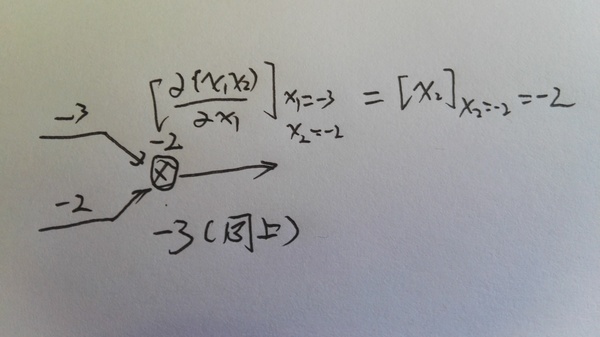 [∂(x₁x₂)/∂x₁] x₁=-3 x₂=-2 = [x₂] x₂=-2 = -2
-3
-2
x
-2
-3(同上)